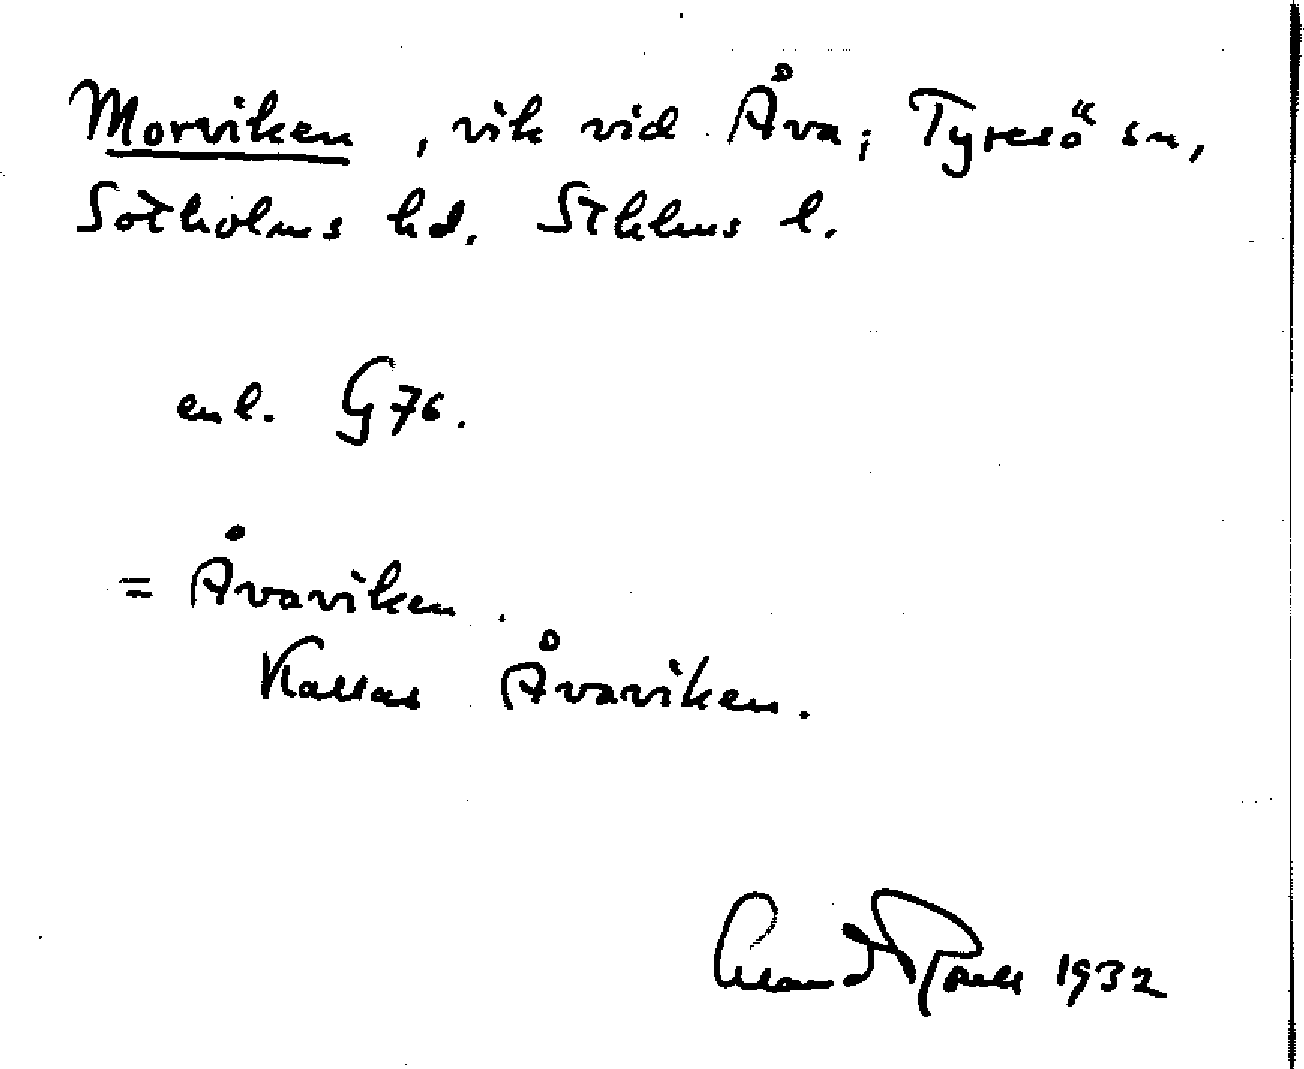 Morviken, vik vid Åva, Tyresö sn,
Sotholms hd. Sthlms l.
enl. G76.
= Åvaviken.
Kallas Åvaviken.
1932